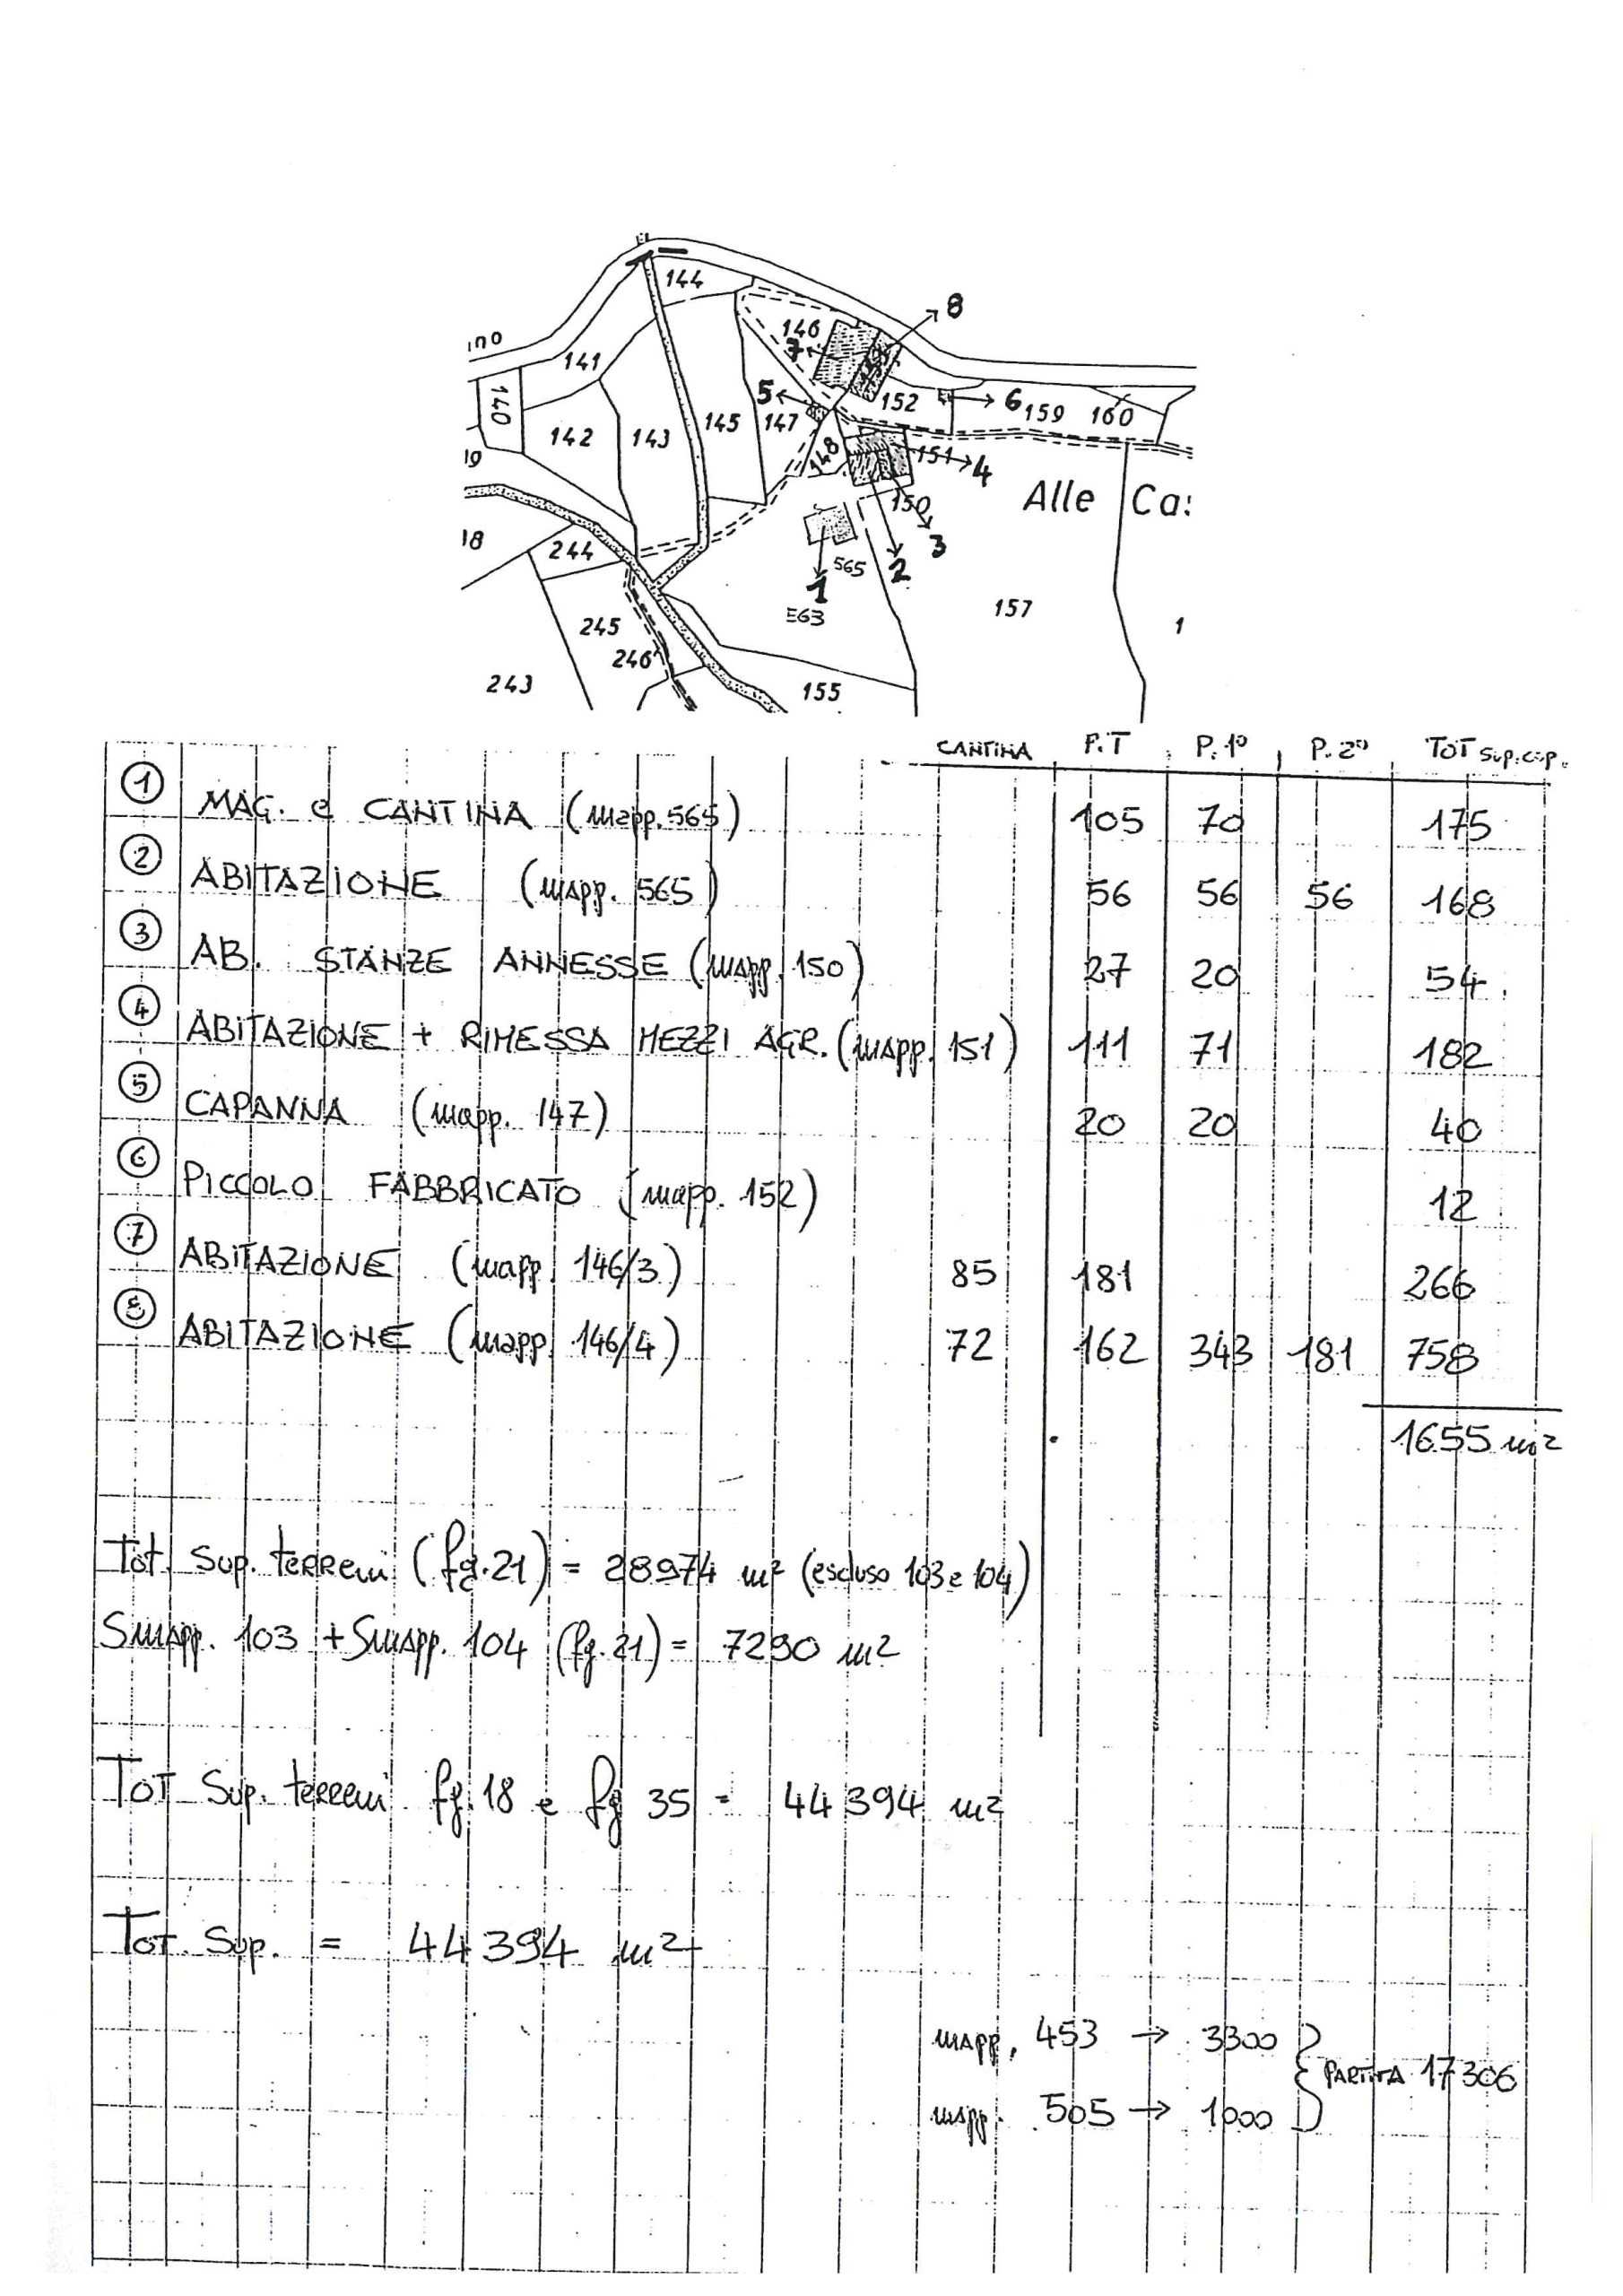 144
8
146
7
ino
141
140
5
152
6
159
160
142
143
145
147
148
151
4
19
150
Alle Ca:
3
18
244
565
2
1
E63
157
245
1
246
243
155
CANTINA P.T P.1° P.2° TOT sup.cop.
1 MAG. e CANTINA (mapp. 565) 105 70 175
2 ABITAZIONE (mapp. 565) 56 56 56 168
3 AB. STANZE ANNESSE (mapp. 150) 27 20 54
4 ABITAZIONE + RIMESSA MEZZI AGR. (mapp. 151) 111 71 182
5 CAPANNA (mapp. 147) 20 20 40
6 PICCOLO FABBRICATO (mapp. 152) 12
7 ABITAZIONE (mapp. 146/3) 85 181 266
8 ABITAZIONE (mapp. 146/4) 72 162 343 181 758
1655 m²
Tot. Sup. terreni (fg.21) = 28974 m² (escluso 103 e 104)
Smapp. 103 + Smapp. 104 (fg. 21) = 7290 m²
TOT Sup. terreni fg.18 e fg 35 = 44394 m²
TOT. Sup. = 44394 m²
mapp. 453 → 3300
PARTITA 17306
mapp. 505 → 1000